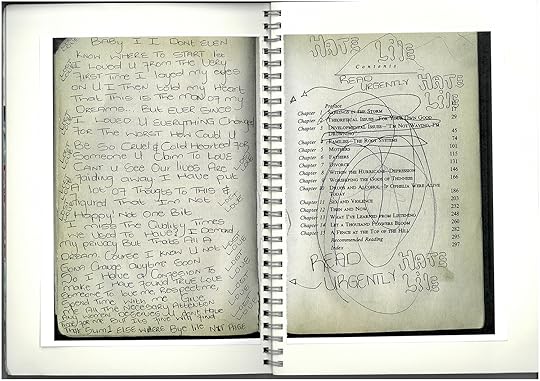 BABY I I DONT EVEN
KNOW WHERE TO START 1ST
I LOVED U FROM THE VERY
FIRST TIME I LAYED MY EYES
ON U I THEN TOLD MY HEART
THAT THIS IS THE MAN OF MY
DREAMS... BUT EVER SINCE
I LOVED U EVERYTHING CHANGED
FOR THE WORST HOW COULD U
BE SO CRUEL & COLD HEARTED FOR
SOMEONE U CLAIM TO LOVE
CANT U SEE OUR LIVES ARE
FADING AWAY I HAVE PUT
A LOT OF THOUGTS TO THIS &
FIGURED THAT IM NOT
HAPPY! NOT ONE BIT
I MISS THE QUALITY TIMES
WE USED TO HAVE! I DEMAND
MY PRIVACY BUT THATS ALL A
DREAM COURSE I KNOW U NOT
GONA CHANGE ANYTIME SOON
SO I HAVE A CONFESSION TO
MAKE I HAVE FOUND TRUE LOVE
SOMEONE TO LOVE ME RESPECT ME,
SPEND TIME WITH ME GIVE
ME ALL THE NECESSARY ATTENTION
ANY WOMEN DESERVES U DONT HAVE
TIME FOR ME BUT ITS FINE WILL FIND
THAT SUM1 ELSE WHERE BYE LIFE NOT PAGE
HATE LIFE
Contents
READ URGENTLY
HATE LIFE
Preface
Chapter 1 SAPLINGS IN THE STORM
Chapter 2 THEORETICAL ISSUES—FOR YOUR OWN GOOD 29
Chapter 3 DEVELOPMENTAL ISSUES—"I'M NOT WAVING, I'M
DROWNING" 45
Chapter 4 FAMILIES—THE ROOT SYSTEMS 74
Chapter 5 MOTHERS 101
Chapter 6 FATHERS 115
Chapter 7 DIVORCE 131
Chapter 8 WITHIN THE HURRICANE—DEPRESSION 146
Chapter 9 WORSHIPING THE GODS OF THINNESS 166
Chapter 10 DRUGS AND ALCOHOL—IF OPHELIA WERE ALIVE
TODAY 186
Chapter 11 SEX AND VIOLENCE 203
Chapter 12 THEN AND NOW 232
Chapter 13 WHAT I'VE LEARNED FROM LISTENING 248
Chapter 14 LET A THOUSAND FLOWERS BLOOM 260
Chapter 15 A FENCE AT THE TOP OF THE HILL 282
Recommended Reading 295
Index 297
READ URGENTLY
HATE LIFE